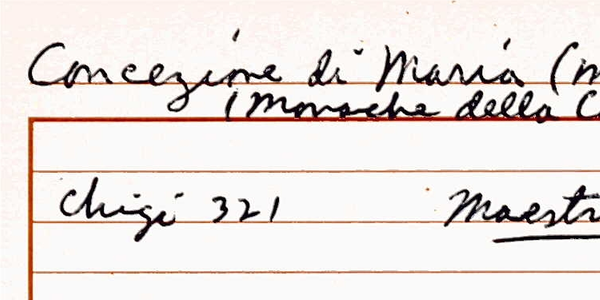 Concezione di Maria (m
(Monache della C
Chigi 321 Maestr